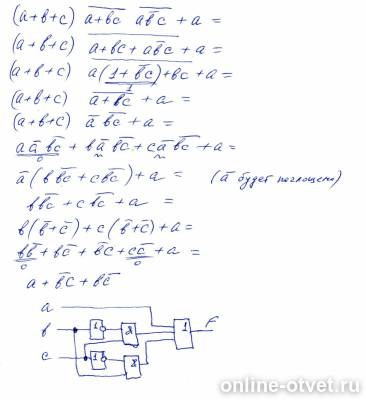 (a+b+c) \overline{a+bc} \overline{a\overline{bc}} + a =
(a+b+c) \overline{a+bc+a\overline{bc}} + a =
(a+b+c) \overline{a(1+\overline{bc})+bc} + a =
1
(a+b+c) \overline{a+bc} + a =
(a+b+c) \overline{a} \overline{bc} + a =
a\overline{a}\overline{bc} + b\overline{a}\overline{bc} + c\overline{a}\overline{bc} + a =
0
\overline{a}(b\overline{bc} + c\overline{bc}) + a = (\overline{a} будет поглощен)
b\overline{bc} + c\overline{bc} + a =
b(\overline{b}+\overline{c}) + c(\overline{b}+\overline{c}) + a =
b\overline{b} + b\overline{c} + \overline{b}c + c\overline{c} + a =
0 0
a + \overline{b}c + b\overline{c}
a
b 1 & 1 F
c 1 &
online-otvet.ru